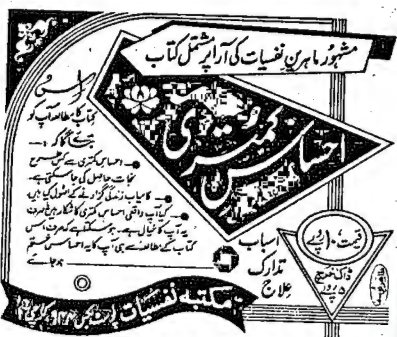 مشہور ماہرینِ نفسیات کی آرا پر مشتمل کتاب
احساسِ کمتری
اس
کتاب کا مطالعہ آپ کو
بتائے گا کہ :-
احساسِ کمتری سے کس طرح
نجات حاصل کی جا سکتی ہے۔
کامیاب زندگی گزارنے کے اصول کیا ہیں
کیا آپ واقعی احساسِ کمتری کا شکار ہیں یا صرف
یہ آپ کا خیال ہے۔ ہو سکتا ہے کہ صرف اس
کتاب کے مطالعے سے ہی آپ کا یہ احساس ختم
ہو جائے
اسباب
تدارک
علاج
قیمت ۱۰ روپے
ڈاک خرچ
۵ روپے
مکتبہ نفسیات پوسٹ بکس کراچی